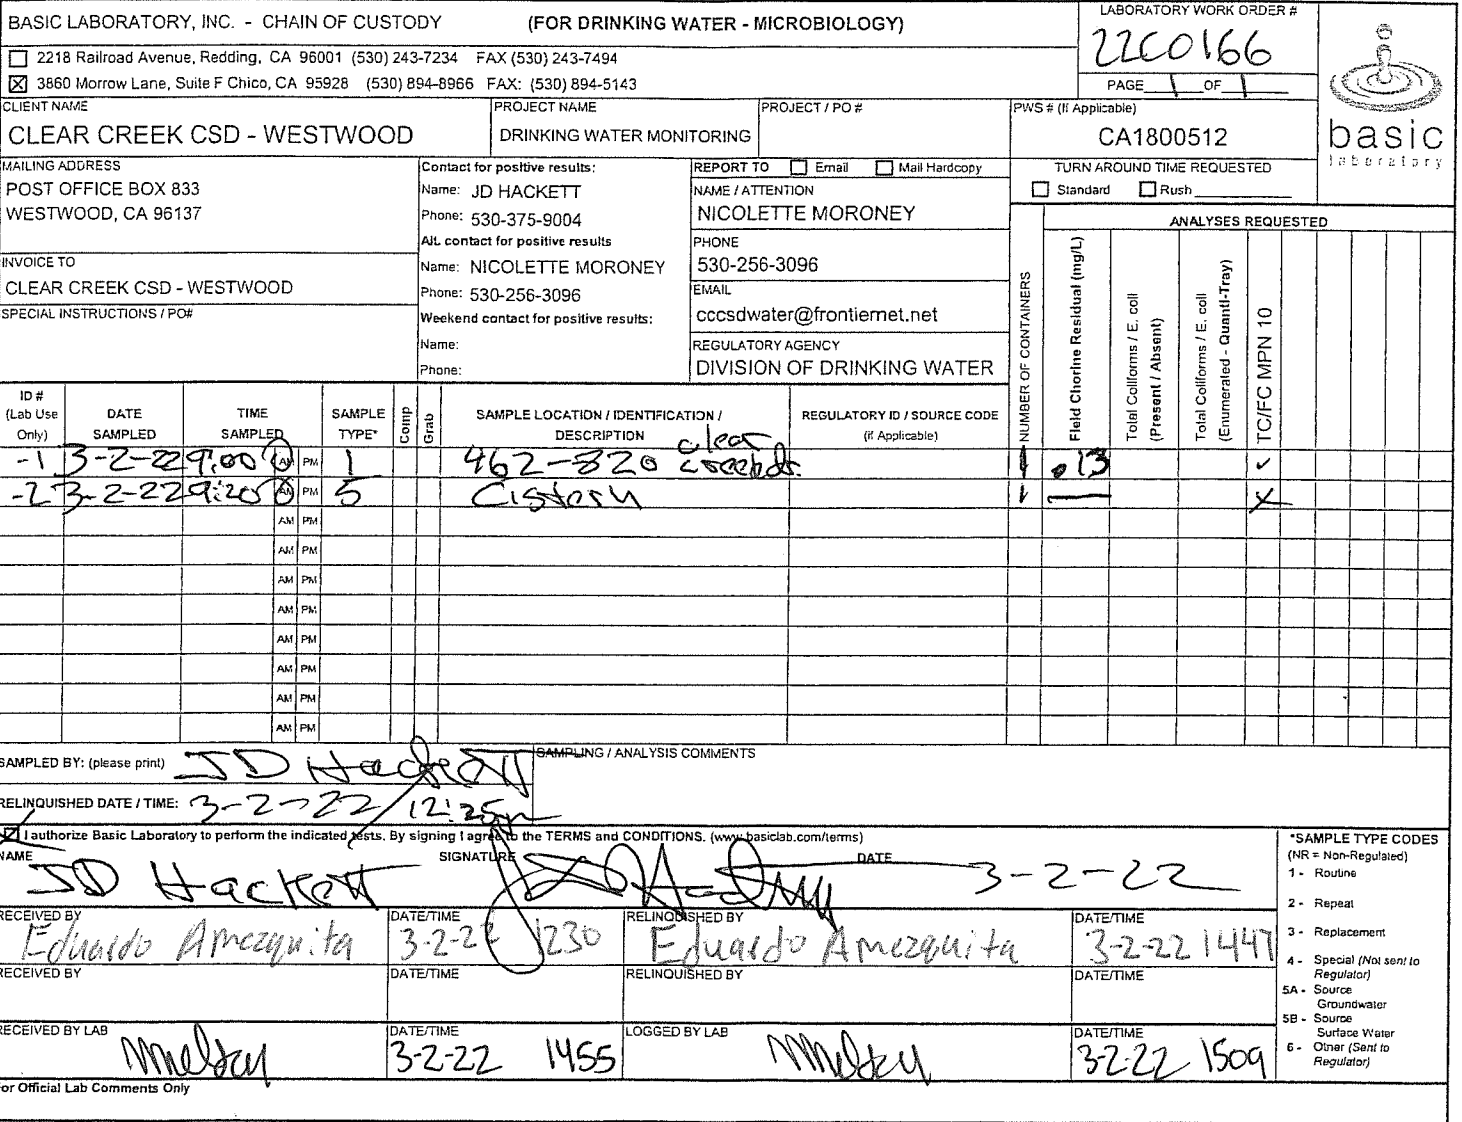 BASIC LABORATORY, INC. - CHAIN OF CUSTODY (FOR DRINKING WATER - MICROBIOLOGY)
LABORATORY WORK ORDER #
22C0166
2218 Railroad Avenue, Redding, CA 96001 (530) 243-7234 FAX (530) 243-7494
☒ 3860 Morrow Lane, Suite F Chico, CA 95928 (530) 894-8966 FAX: (530) 894-5143
PAGE 1 OF 1
basic
laboratory
CLIENT NAME
CLEAR CREEK CSD - WESTWOOD
PROJECT NAME
DRINKING WATER MONITORING
PROJECT / PO #
PWS # (If Applicable)
CA1800512
MAILING ADDRESS
POST OFFICE BOX 833
WESTWOOD, CA 96137
INVOICE TO
CLEAR CREEK CSD - WESTWOOD
SPECIAL INSTRUCTIONS / PO#
Contact for positive results:
Name: JD HACKETT
Phone: 530-375-9004
Alt. contact for positive results
Name: NICOLETTE MORONEY
Phone: 530-256-3096
Weekend contact for positive results:
Name:
Phone:
REPORT TO Email Mail Hardcopy
NAME / ATTENTION
NICOLETTE MORONEY
PHONE
530-256-3096
EMAIL
cccsdwater@frontiernet.net
REGULATORY AGENCY
DIVISION OF DRINKING WATER
TURN AROUND TIME REQUESTED
Standard Rush
ANALYSES REQUESTED
NUMBER OF CONTAINERS
Field Chorine Residual (mg/L)
Total Coliforms / E. coli
(Present / Absent)
Total Coliforms / E. coli
(Enumerated - Quanti-Tray)
TC/FC MPN 10
ID #
(Lab Use
Only)
DATE
SAMPLED
TIME
SAMPLED
SAMPLE
TYPE*
Comp
Grab
SAMPLE LOCATION / IDENTIFICATION /
DESCRIPTION
REGULATORY ID / SOURCE CODE
(if Applicable)
-1 3-2-22 9:00 AM PM 1 462-820 clear 1 .13 ✓
-2 3-2-22 9:20 AM PM 5 Cistern 1 — X
AM PM
AM PM
AM PM
AM PM
AM PM
AM PM
AM PM
AM PM
SAMPLED BY: (please print) JD Hackett
SAMPLING / ANALYSIS COMMENTS
RELINQUISHED DATE / TIME: 3-2-22 / 12:25
☒ I authorize Basic Laboratory to perform the indicated tests. By signing I agree to the TERMS and CONDITIONS. (www.basiclab.com/terms)
NAME
JD Hackett
SIGNATURE
DATE
3-2-22
RECEIVED BY
Eduardo Amezquita
DATE/TIME
3-2-22 1230
RELINQUISHED BY
Eduardo Amezquita
DATE/TIME
3-2-22 1447
RECEIVED BY
DATE/TIME
RELINQUISHED BY
DATE/TIME
RECEIVED BY LAB
DATE/TIME
3-2-22 1455
LOGGED BY LAB
DATE/TIME
3-2-22 1509
*SAMPLE TYPE CODES
(NR = Non-Regulated)
1 - Routine
2 - Repeat
3 - Replacement
4 - Special (Not sent to
Regulator)
5A - Source
Groundwater
5B - Source
Surface Water
6 - Other (Sent to
Regulator)
or Official Lab Comments Only